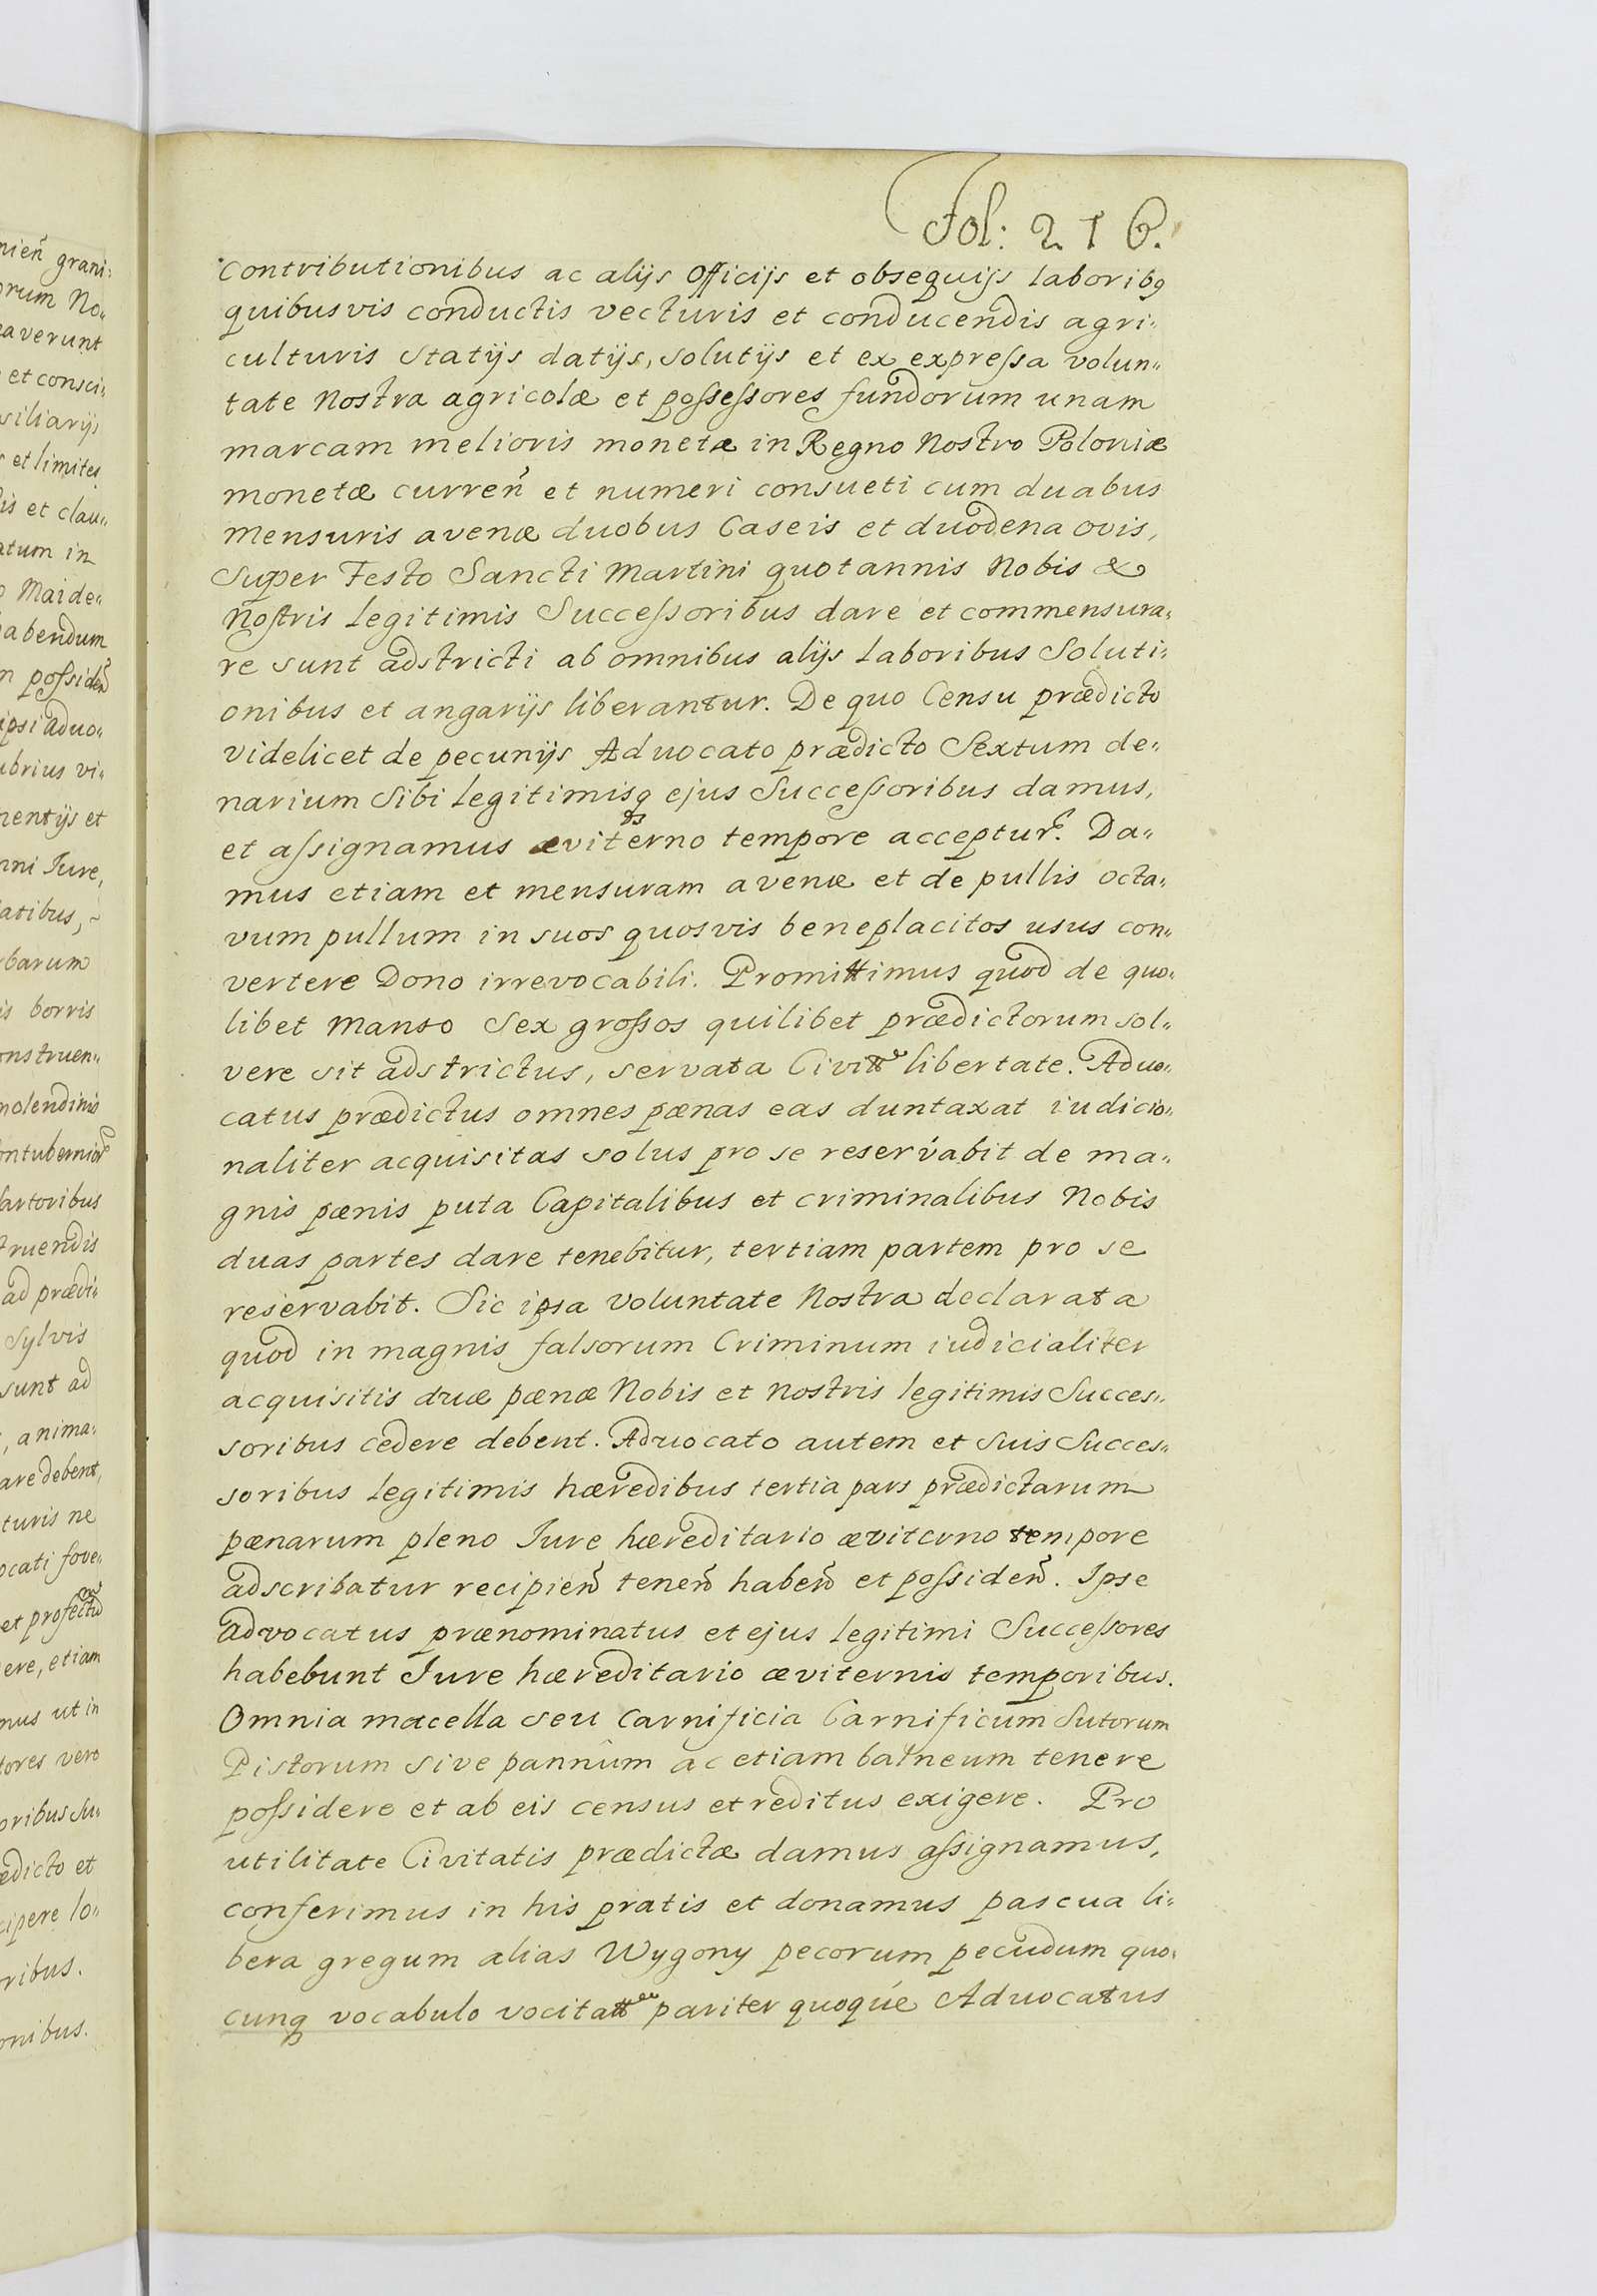 Fol: 216.
contributionibus ac alijs Officijs et obsequijs laborib9
quibusvis conductis vecturis et conducendis agri„
culturis statijs datijs, solutijs et ex expressa volun„
tate Nostra agricolæ et possessores fundorum unam
marcam melioris monetæ in Regno Nostro Poloniæ
monetæ curreñ et numeri consueti cum duabus
mensuris avenæ duobus Caseis et duodena ovis,
Super Festo Sancti Martini quotannis Nobis &
Nostris legitimis Successoribus dare et commensura„
re sunt adstricti ab omnibus alijs laboribus Soluti„
onibus et angarijs liberantur. De quo Censu prædicto
videlicet de pecunijs Advocato prædicto Sextum de„
narium Sibi legitimisq ejus Successoribus damus,
et assignamus æviterno tempore acceptur. Da„
mus etiam et mensuram avenæ et de pullis octa„
vum pullum in suos quosvis beneplacitos usus con„
vertere Dono irrevocabili. Promittimus quod de quo„
libet manso Sex grossos quilibet prædictorum sol„
vere sit adstrictus, servata Civitte libertate. Advo„
catus prædictus omnes pænas eas duntaxat iudicio„
naliter acquisitas solus pro se reservabit de ma„
gnis pænis puta Capitalibus et criminalibus Nobis
duas partes dare tenebitur, tertiam partem pro se
reservabit. Sic ipsa voluntate Nostra declarata
quod in magnis falsorum Criminum iudicialiter
acquisitis duæ pænæ Nobis et nostris legitimis Succes„
soribus cedere debent. Advocato autem et suis Succes„
soribus legitimis hæredibus tertia pars prædictarum
pænarum pleno Iure hæreditario æviterno tempore
adscribatur recipieñ teneñ habeñ et possideñ. Ipse
advocatus prænominatus et ejus legitimi Successores
habebunt Iure hæreditario æviternis temporibus.
Omnia macella seu Carnificia Carnificum Sutorum
Pistorum sive pannum ac etiam balneum tenere
possidere et ab eis census et reditus exigere. Pro
utilitate Civitatis prædictæ damus assignamus,
conferimus in his pratis et donamus pascua li„
bera gregum alias Wygony pecorum pecudum quo„
cunq vocabulo vocitatt pariter quoque Advocatus